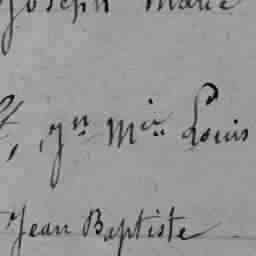 Joseph Marie
, jn Mie Louis
Jean Baptiste